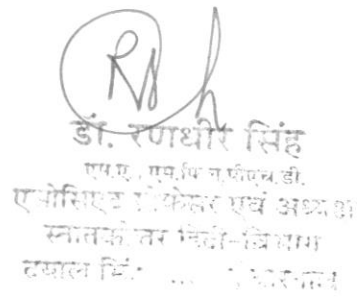 डॉ. रणधीर सिंह
एम.ए., एम.फिल, पीएच.डी.
एसोसिएट प्रोफेसर एवं अध्यक्ष
स्नातकोत्तर हिंदी-विभाग
दयाल सिं